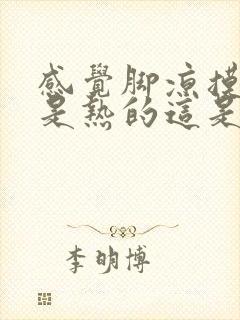 感覺脚凉摸
是熱的這是
李明博